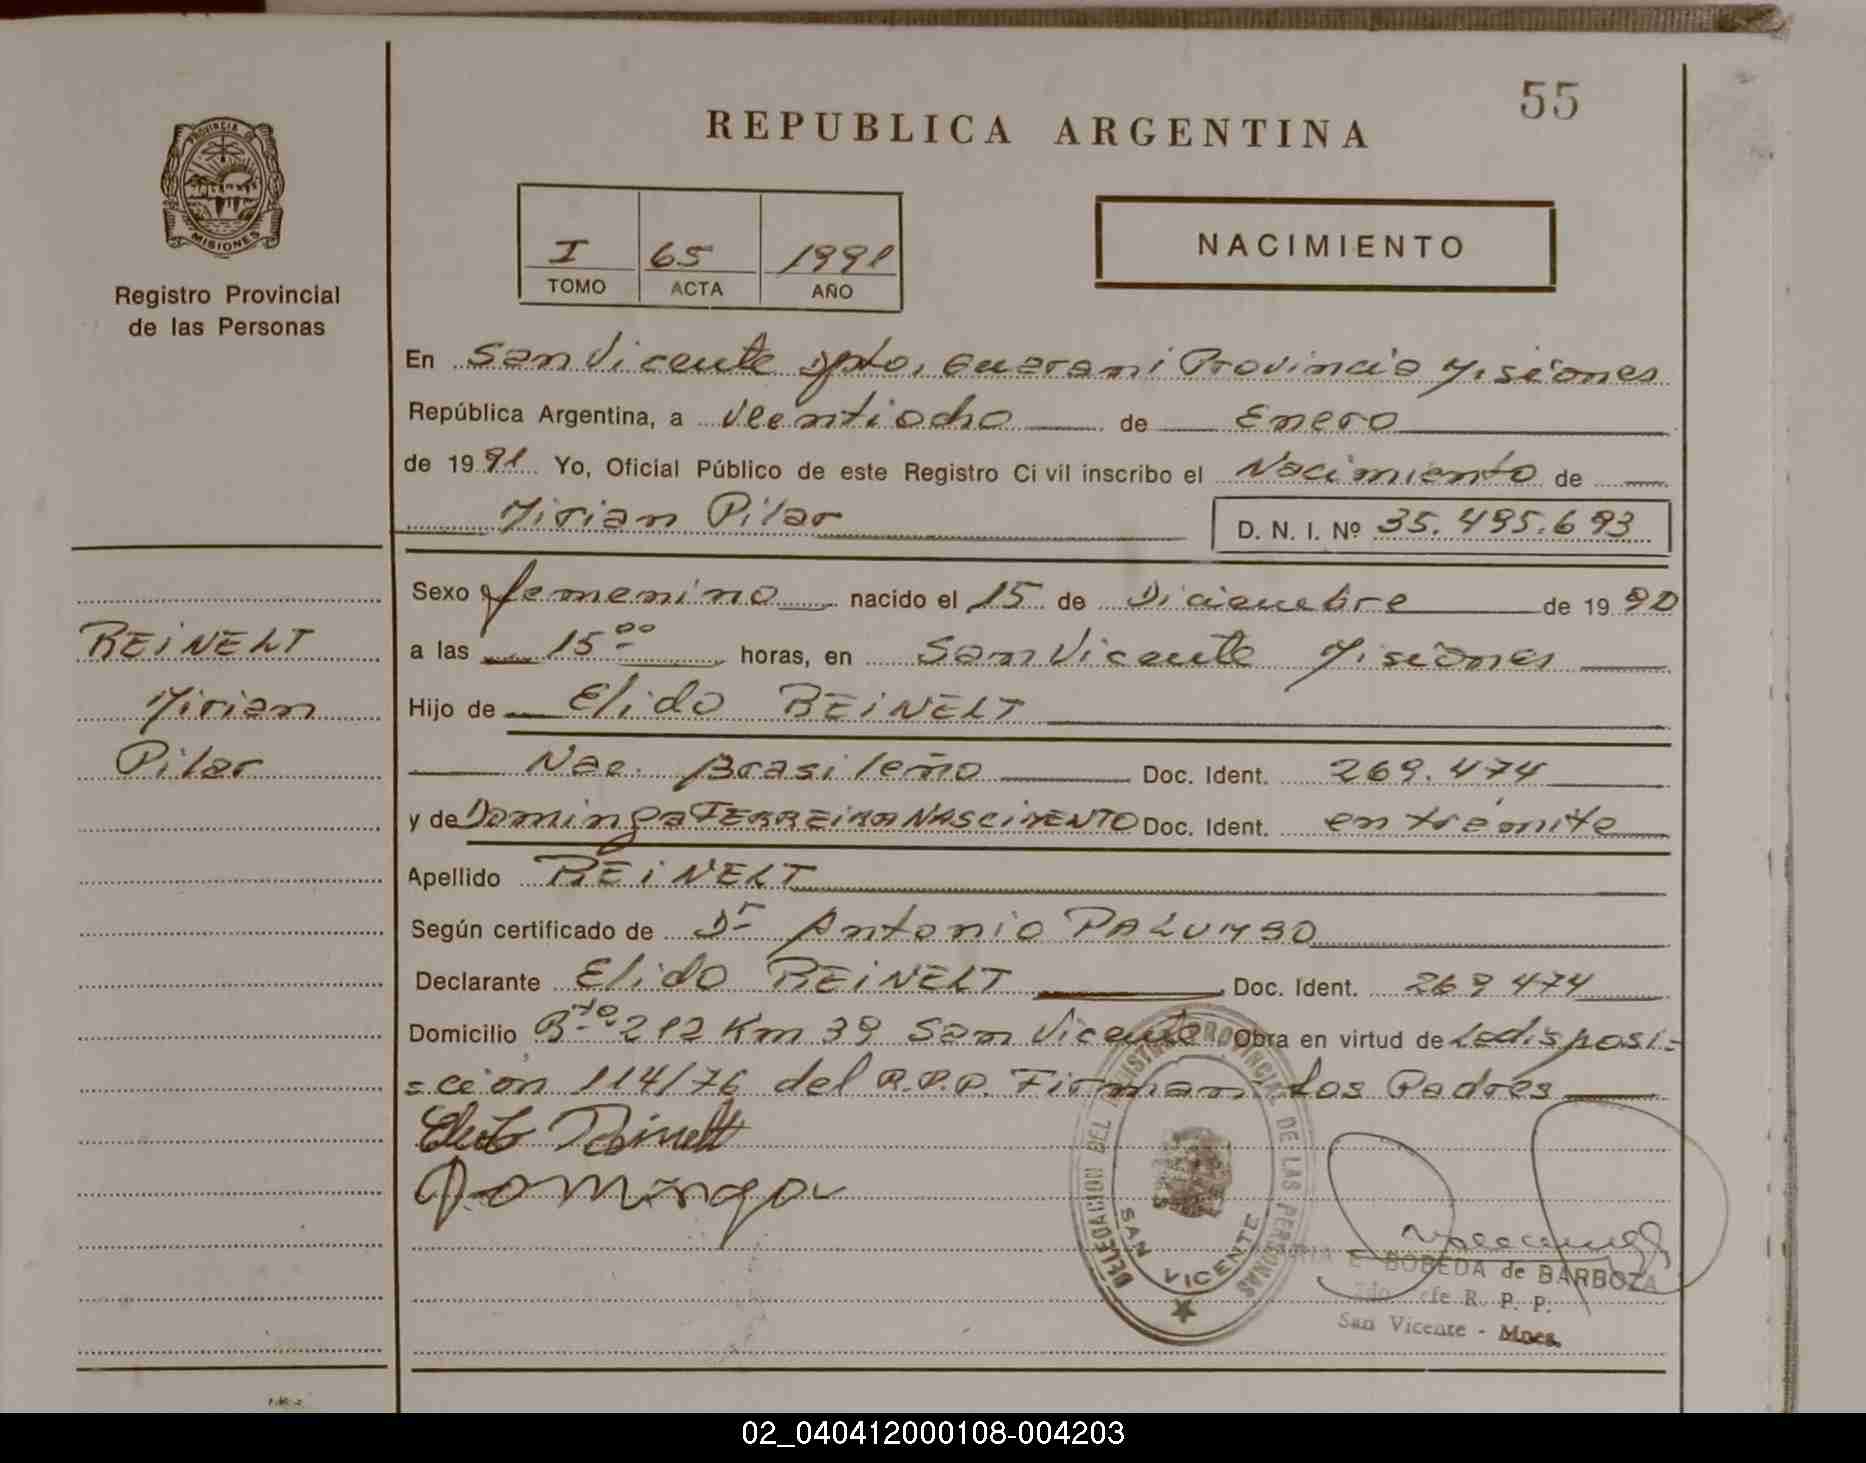 55
REPUBLICA ARGENTINA
PROVINCIA DE
MISIONES
Registro Provincial
de las Personas
I 65 1991
TOMO ACTA AÑO
NACIMIENTO
En San Vicente Dpto, Guarani Provincia Misiones
República Argentina, a Veentiocho de Enero
de 1991 Yo, Oficial Público de este Registro Civil inscribo el Nacimiento de
Mirian Pilar D. N. I. Nº 35.495.693
Sexo femenino nacido el 15 de Diciembre de 1990
a las 15 00 horas, en San Vicente Misiones
Hijo de Elido REINELT
Nac. Brasileño Doc. Ident. 269.474
y de Dominga FERREIRA NASCIMENTO Doc. Ident. en trámite
Apellido REINELT
Según certificado de Dr Antonio PALUMBO
Declarante Elido REINELT Doc. Ident. 269 474
Domicilio 212 Km 39 San Vicente Obra en virtud de La disposi=
=ción 114/76 del R.P.P. Firman: Los Padres
Dominga
REINELT
Mirian
Pilar
DELEGACION DEL REGISTRO PROVINCIAL DE LAS PERSONAS
SAN VICENTE
E. BOBEDA de BARBOZA
R. P. P.
San Vicente - Mnes.
02_040412000108-004203